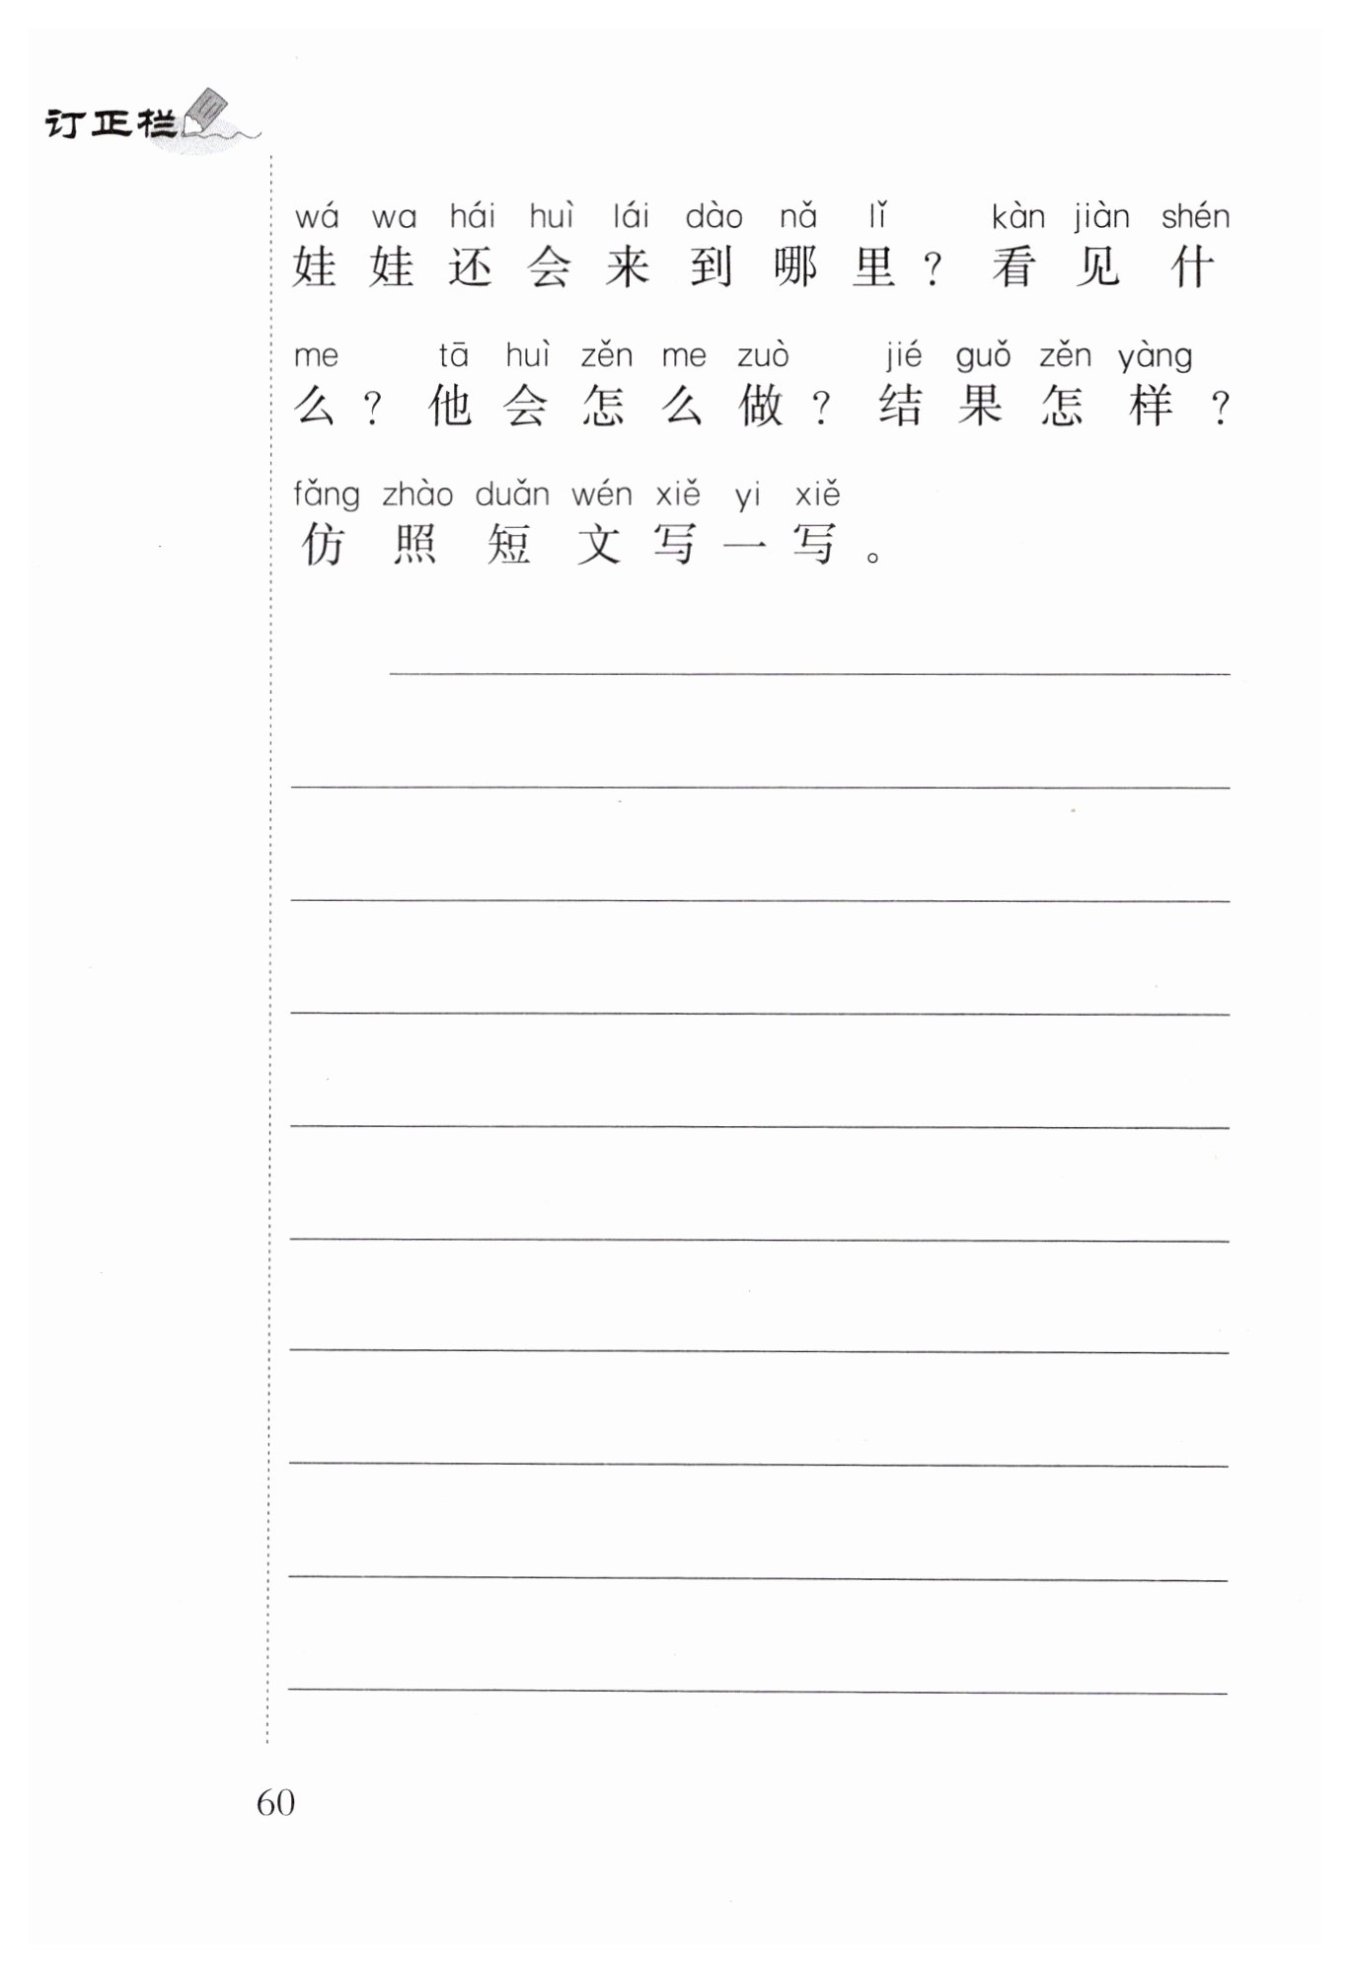 订正栏
wá wa hái huì lái dào nǎ lǐ kàn jiàn shén
娃娃还会来到哪里？看见什
me tā huì zěn me zuò jié guǒ zěn yàng
么？他会怎么做？结果怎样？
fǎng zhào duǎn wén xiě yi xiě
仿照短文写一写。
60